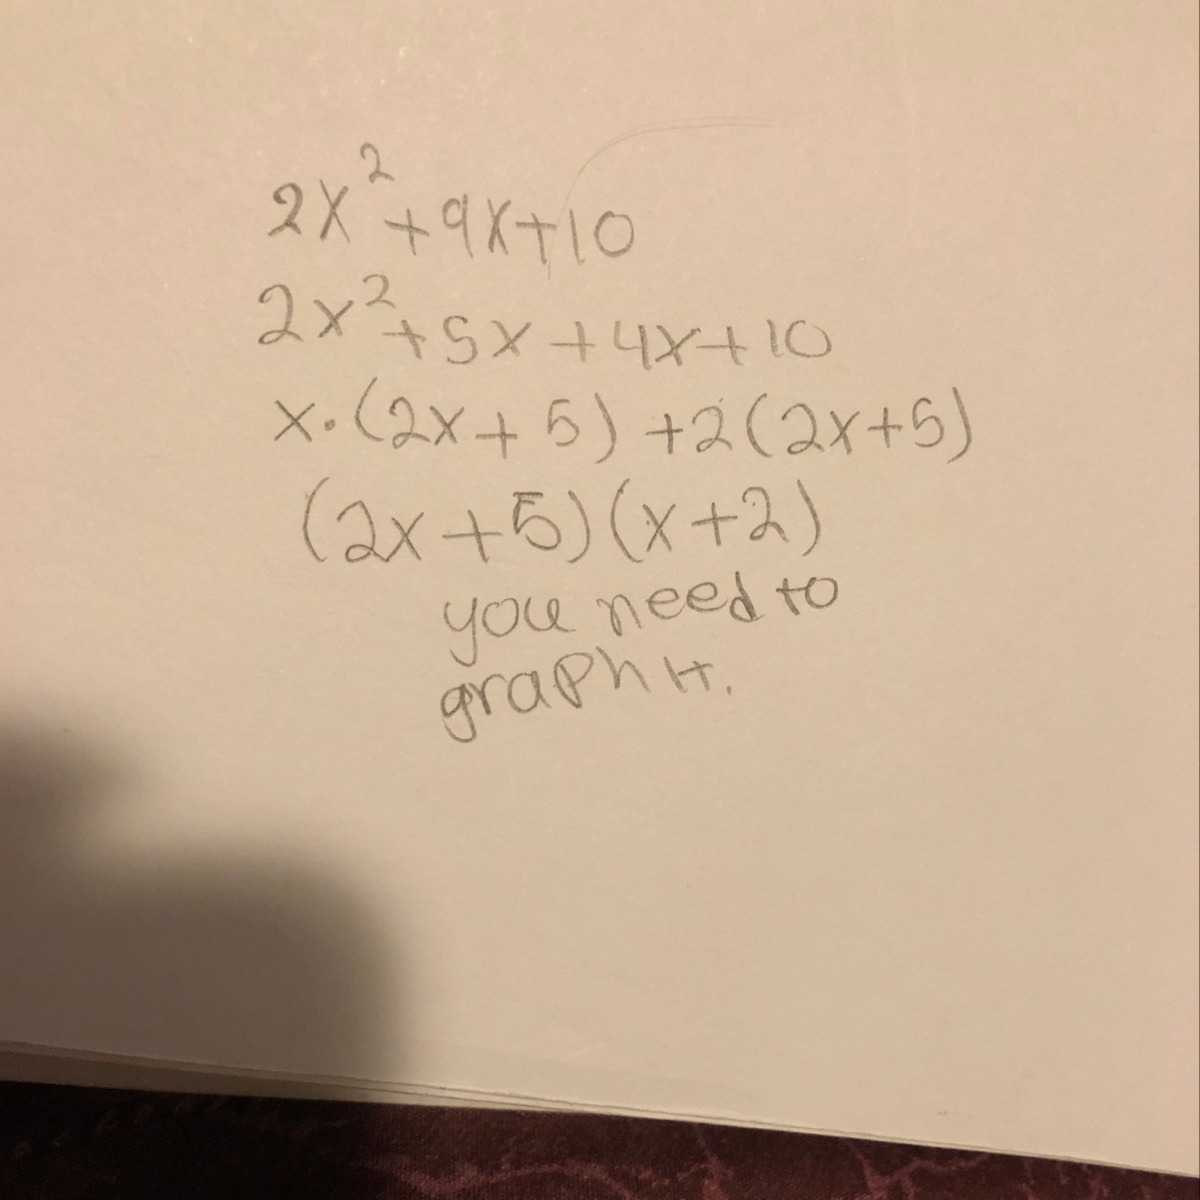 2x²+9x+10
2x²+5x+4x+10
x·(2x+5)+2(2x+5)
(2x+5)(x+2)
you need to
graph it.